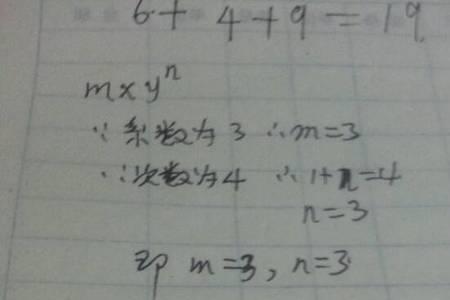 6+4+9=19
mxyⁿ
∵系数为3 ∴m=3
∵次数为4 ∴1+n=4
n=3
即 m=3, n=3